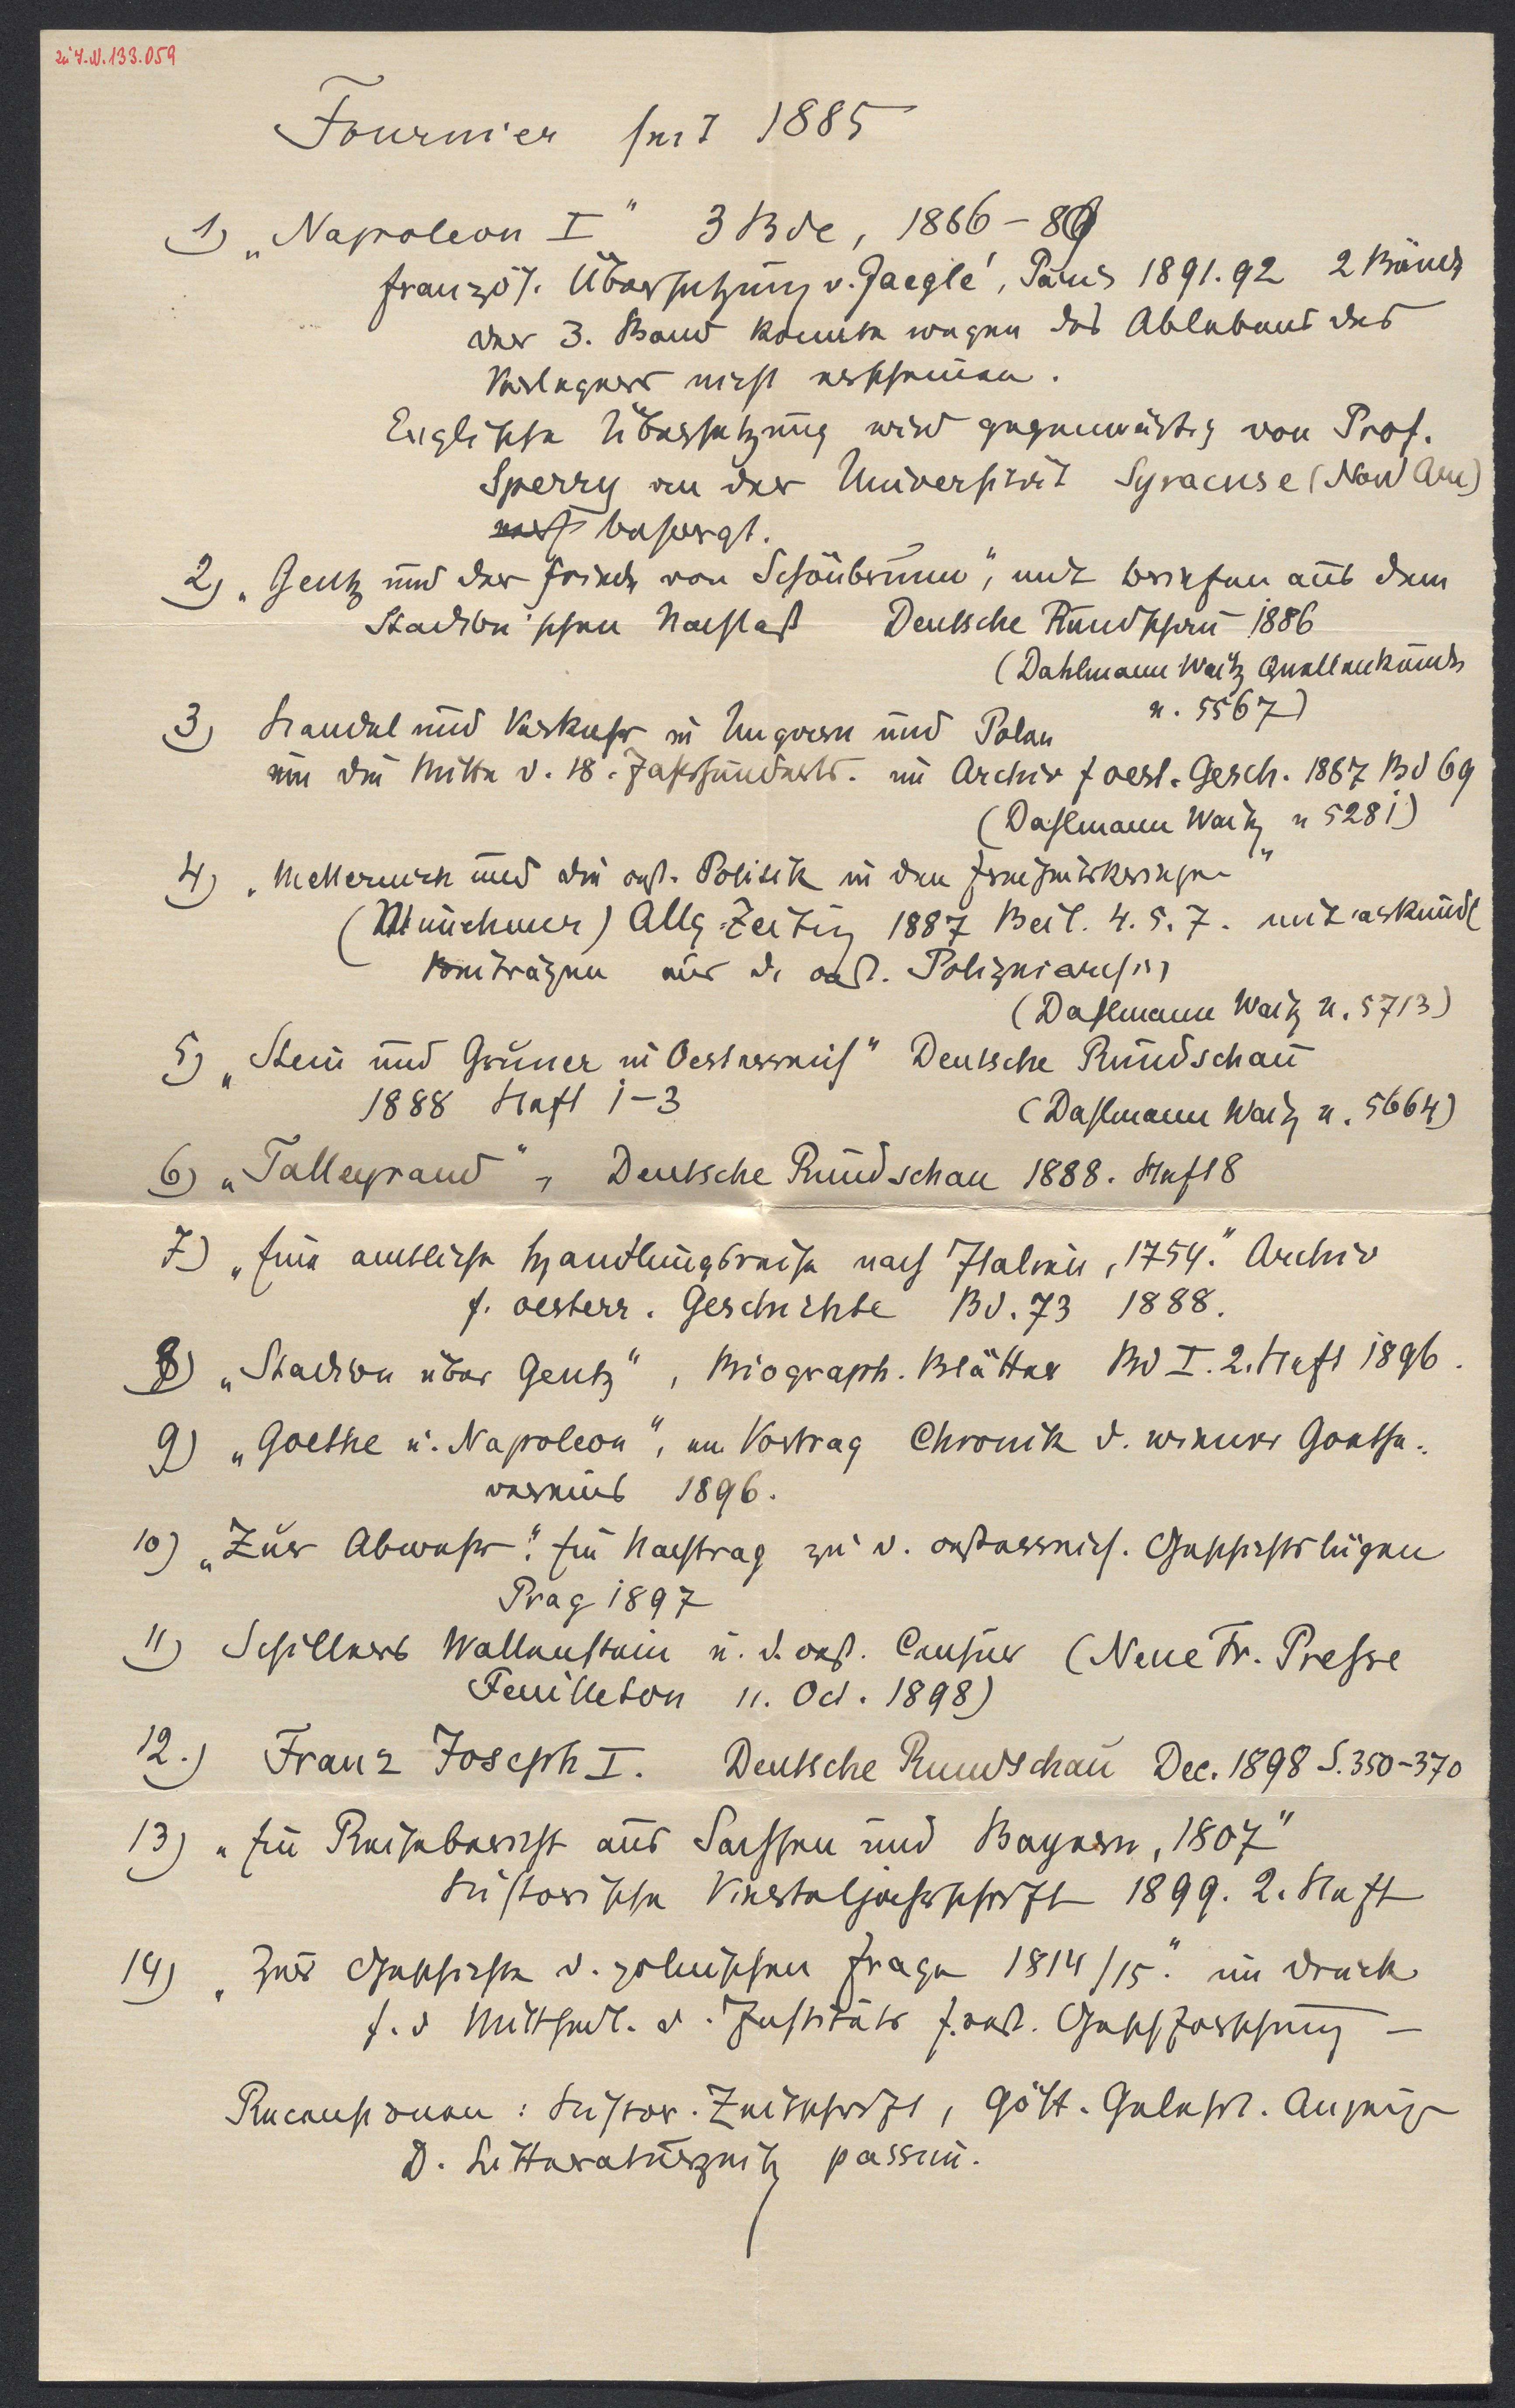 zu I.N. 133.059
Fournier seit 1885
1) „Napoleon I“ 3 Bde, 1886–89
französ. Übersetzung v. Jaeglé, Paris 1891.92 2 Bände
der 3. Band konnte wegen des Ablebens des
Verlegers nicht erscheinen.
Englische Übersetzung wird gegenwärtig von Prof.
Sperry an der Universität Syracuse (Nord Am)
besorgt.
2) „Gentz und der Friede von Schönbrunn“, mit Briefen aus dem
Stadion'schen Nachlaß Deutsche Rundschau 1886
(Dahlmann Waitz Quellenkunde
n. 5567)
3) Handel und Verkehr in Ungarn und Polen
um die Mitte d. 18. Jahrhunderts. im Archiv f oest. Gesch. 1887 Bd 69
(Dahlmann Waitz n 5281)
4) „Metternich und die öst. Politik in den Freiheitskriegen“
(Münchner) Allg. Zeitung 1887 Beil. 4. 5. 7. mit urkundl
Beiträgen aus d. oest. Polizeiarchiv
(Dahlmann Waitz n. 5713)
5) „Stein und Gruner in Oesterreich“ Deutsche Rundschau
1888 Heft 1–3 (Dahlmann Waitz n. 5664)
6) „Talleyrand“, Deutsche Rundschau 1888. Heft 8
7) „Eine amtliche Handlungsreise nach Italien, 1754.“ Archiv
f. oesterr. Geschichte Bd. 73 1888.
8) „Stadion über Gentz“, Biograph. Blätter Bd I. 2. Heft 1896.
9) „Goethe u. Napoleon“, ein Vortrag Chronik d. wiener Goethe-
vereins 1896.
10) „Zur Abwehr“. Ein Nachtrag zu d. oesterreich. Geschichtslügen
Prag 1897
11) Schillers Wallenstein u. d. oest. Censur (Neue Fr. Presse
Feuilleton 11. Oct. 1898)
12.) Franz Joseph I. Deutsche Rundschau Dec. 1898 S. 350–370
13) „Ein Reisebericht aus Sachsen und Bayern, 1807“
Historische Vierteljahrschrift 1899. 2. Heft
14) „Zur Geschichte d. polnischen Frage 1814/15.“ im Druck
f. d Mittheil. d. Instituts f. oest. Geschforschung –
Recensionen: Histor. Zeitschrift, Gött. Gelehrt. Anzeigen
D. Litteraturzeitg passim.